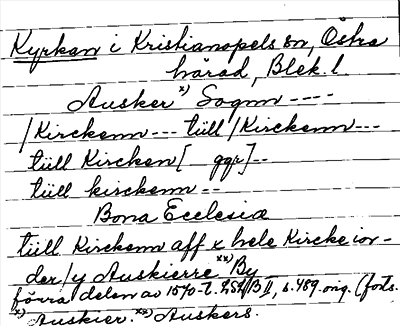 Kyrkan i Kristianopels sn, Östra
härad, Blek. l
Ausker x) Sognn ----
/Kirckenn --- tüll /Kirckenn ---
tüll Kircken [ ggr] --
tüll kirckenn --
Bona Ecclesiæ
tüll Kirckenn aff x hele Kircke ior-
der /y Auskierre xx) By
förra delen av 1570-t. II, s. 489. orig. (forts.
x) Auskier. xx) Auskers.